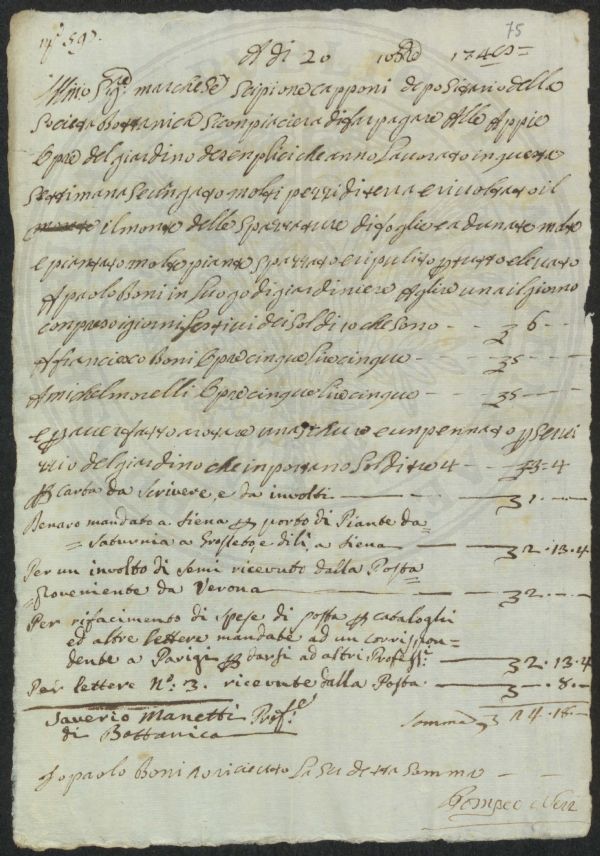 75
A di 20 10bre 174
Illmo Sigre marchese Scipione Capponi depositario della
Societa Bottanica Si conpiacera di far pagare Alle Appie
Opre del giardino de senplici che anno Lavorato in questa
Settimana e molti pezzi di terra e rivoltato il
il monte delle Spazzature di foglie e adunate molte
e piantato molte piante Spazzato e ripulito per tutto e levato
A paolo Boni in Luogo di giardiniere A lire una il giorno
conpreso i giorni festivi dei Soldi 10 che Sono - - 3 6 - -
A franciesco Boni Opre cinque Lire cinque - - 35 - - -
A michel morelli Opre cinque Lire cinque - - 35 - - -
e per aver fatto arotare una e un pennato per Servi
zzio del giardino che inportano Soldi - - 3 - 4
per carta da Scrivere, e da involti - 3 1. - -
Denaro mandato a Siena per porto di Piante da =
= Saturnia a Grosseto, e di lì, a Siena - 3 2. 13. 4
Per un involto di Semi ricevuto dalla Posta
Proveniente da Verona - 3 2. - -
Per rifacimento di Spese di posta per cataloghi
ed altre lettere mandate ad un corrispon=
dente a Parigi per darsi ad altri Profess.i - 3 2. 13. 4
Per lettere N.o 3. ricevute dalla Posta - 3 -. 8. -
Saverio Manetti Prof.e Somma 3
di Bottanica
Io paolo Boni o riceuto La Su detta Somma - -
Pompeo Neri